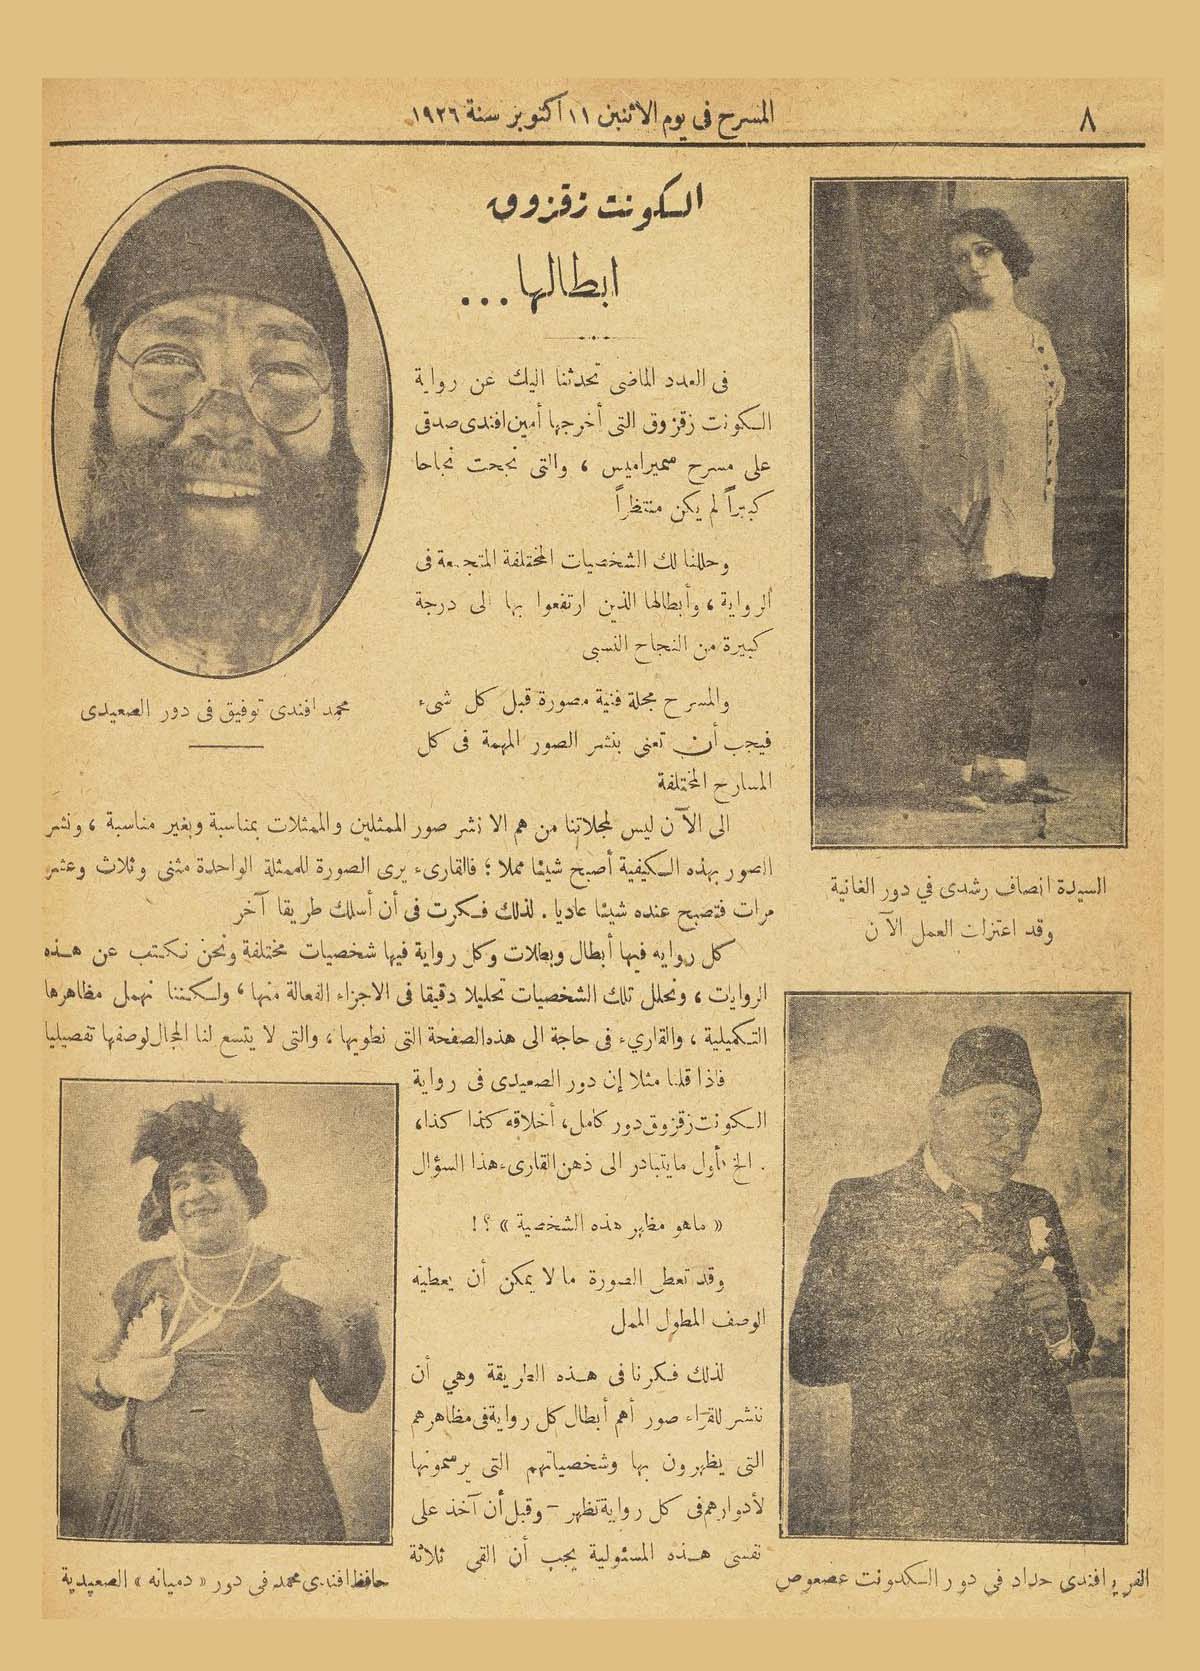 ٨
المسرح فى يوم الاثنين ١١ اكتوبر سنة ١٩٢٦
الكونت زقزوق
ابطالها...
فى العدد الماضى تحدثنا اليك عن رواية
الكونت زقزوق التى أخرجها أمين افندى صدقى
على مسرح سميراميس ، والتى نجحت نجاحا
كبيراً لم يكن منتظراً
وحللنا لك الشخصيات المختلفة المتجمعة فى
الرواية ، وأبطالها الذين ارتفعوا بها الى درجة
كبيرة من النجاح النسبى
والمسرح مجلة فنية مصورة قبل كل شىء
فيجب أن تعنى بنشر الصور المهمة فى كل
المسارح المختلفة
الى الآن ليس لمجلاتنا من هم الا نشر صور الممثلين والممثلات بمناسبة وبغير مناسبة ، ونشر
الصور بهذه الكيفية أصبح شيئا مملا ؛ فالقارىء يرى الصورة للممثلة الواحدة مثنى وثلاث وعشر
مرات فتصبح عنده شيئا عاديا . لذلك فكرت فى أن أسلك طريقا آخر
كل روايه فيها أبطال وبطلات وكل رواية فيها شخصيات مختلفة ونحن نكتب عن هذه
الروايات ، ونحلل تلك الشخصيات تحليلا دقيقا فى الاجزاء الفعالة منها ، ولكننا نهمل مظاهرها
التكميلية ، والقاريء فى حاجة الى هذه الصفحة التى نطويها ، والتى لا يتسع لنا المجال لوصفها تفصيليا
فاذا قلنا مثلا إن دور الصعيدى فى رواية
الكونت زقزوق دور كامل، أخلاقه كذا كذا،
. الخ فأول ما يتبادر الى ذهن القارىء هذا السؤال
« ماهو مظهر هذه الشخصية » ؟!
وقد تعطى الصورة ما لا يمكن أن يعطيه
الوصف المطول الممل
لذلك فكرنا فى هذه الطريقة وهي أن
ننشر للقراء صور أهم أبطال كل رواية فى مظاهرهم
التى يظهرون بها وشخصياتهم التى يرسمونها
لأدوارهم فى كل رواية تظهر – وقبل أن آخذ على
نفسى هذه المسئولية يجب أن القي ثلاثة
محمد افندى توفيق فى دور الصعيدى
السيدة انصاف رشدى في دور الغانية
وقد اعتزلت العمل الآن
حافظ افندى محمد فى دور « دميانه » الصعيدية
الفريد افندى حداد في دور الكونت عصعوص